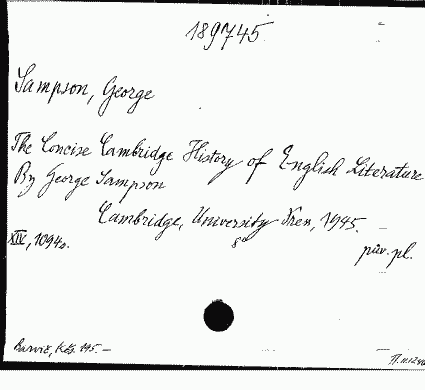 189745
Sampson, George
The Concise Cambridge History of English Literature
By George Sampson
Cambridge, University Press, 1945.
8°
XIV, 1094s.
pův. pl.
Barvič, Kčs. 195.–